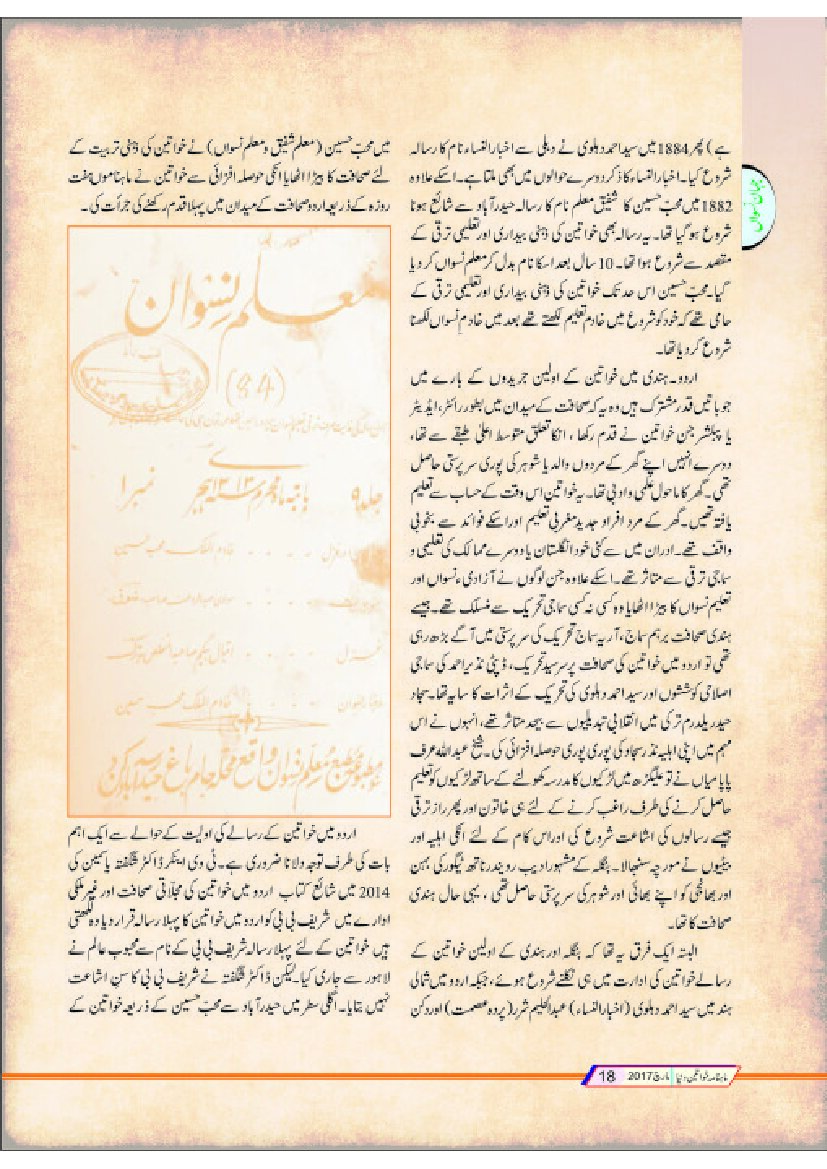 ہے) پھر 1884 میں سید احمد دہلوی نے دہلی سے اخبار النساء نام کا رسالہ
شروع کیا۔ اخبار النساء کا ذکر دوسرے حوالوں میں بھی ملتا ہے۔ اسکے علاوہ
1882 میں محبّ حسین کا شفیق معلم نام کا رسالہ حیدرآباد سے شائع ہونا
شروع ہو گیا تھا۔ یہ رسالہ بھی خواتین کی ذہنی بیداری اور تعلیمی ترقی کے
مقصد سے شروع ہوا تھا۔ 10 سال بعد اسکا نام بدل کر معلم نسواں کر دیا
گیا۔ محبّ حسین اس حد تک خواتین کی ذہنی بیداری اور تعلیمی ترقی کے
حامی تھے کہ خود کو شروع میں خادم تعلیم لکھتے تھے بعد میں خادم نسواں لکھنا
شروع کر دیا تھا۔
اردو۔ ہندی میں خواتین کے اولین جریدوں کے بارے میں
جو باتیں قدر مشترک ہیں وہ یہ کہ صحافت کے میدان میں بطور رائٹر، ایڈیٹر
یا پبلشر جن خواتین نے قدم رکھا، انکا تعلق متوسط اعلیٰ طبقے سے تھا،
دوسرے انہیں اپنے گھر کے مردوں والد یا شوہر کی پوری سرپرستی حاصل
تھی۔ گھر کا ماحول علمی و ادبی تھا۔ یہ خواتین اس وقت کے حساب سے تعلیم
یافتہ تھیں۔ گھر کے مرد افراد جدید مغربی تعلیم اور اسکے فوائد سے بخوبی
واقف تھے۔ اور ان میں سے کئی خود انگلستان یا دوسرے ممالک کی تعلیمی و
سماجی ترقی سے متاثر تھے۔ اسکے علاوہ جن لوگوں نے آزادیء نسواں اور
تعلیم نسواں کا بیڑا اٹھایا وہ کسی نہ کسی سماجی تحریک سے منسلک تھے۔ جیسے
ہندی صحافت برہم سماج، آریہ سماج تحریک کی سرپرستی میں آگے بڑھ رہی
تھی تو اردو میں خواتین کی صحافت پر سرسید تحریک، ڈپٹی نذیر احمد کی سماجی
اصلاحی کوششوں اور سید احمد دہلوی کی تحریک کے اثرات کا سایہ تھا۔ سجاد
حیدر یلدرم ترکی میں انقلابی تبدیلیوں سے بیحد متاثر تھے، انہوں نے اس
مہم میں اپنی اہلیہ نذر سجاد کی پوری پوری حوصلہ افزائی کی۔ شیخ عبداللہ عرف
پاپا میاں نے تو علیگڑھ میں لڑکیوں کا مدرسہ کھولنے کے ساتھ لڑکیوں کو تعلیم
حاصل کرنے کی طرف راغب کرنے کے لئے ہی خاتون اور پھر راز ترقی
جیسے رسالوں کی اشاعت شروع کی اور اس کام کے لئے انکی اہلیہ اور
بیٹیوں نے مورچہ سنبھالا۔ بنگلہ کے مشہور ادیب رویندر ناتھ ٹیگور کی بہن
اور بھانجی کو اپنے بھائی اور شوہر کی سرپرستی حاصل تھی، یہی حال ہندی
صحافت کا تھا۔
البتہ ایک فرق یہ تھا کہ بنگلہ اور ہندی کے اولین خواتین کے
رسالے خواتین کی ادارت میں ہی نکلنے شروع ہوئے، جبکہ اردو میں شمالی
ہند میں سید احمد دہلوی (اخبار النساء) عبدالحلیم شرر (پردہ عصمت) اور دکن
میں محبّ حسین (معلم شفیق و معلم نسواں) نے خواتین کی ذہنی تربیت کے
لئے صحافت کا بیڑا اٹھایا انکی حوصلہ افزائی سے خواتین نے ماہناموں ہفت
روزہ کے ذریعہ اردو صحافت کے میدان میں پہلا قدم رکھنے کی جرأت کی۔
معلم نسوان
(84)
جلد ۹
نمبر ۱
خادم الملک محب حسین
مطبوعہ مطبع معلم نسوان واقع محلہ جام باغ حیدرآباد دکن
اردو میں خواتین کے رسالے کی اولیت کے حوالے سے ایک اہم
بات کی طرف توجہ دلانا ضروری ہے۔ ٹی وی اینکر ڈاکٹر شگفتہ یاسمین کی
2014 میں شائع کتاب اردو میں خواتین کی مجلاتی صحافت اور غیر ملکی
ادارے میں شریف بی بی کو اردو میں خواتین کا پہلا رسالہ قرار دیا وہ لکھتی
ہیں خواتین کے لئے پہلا رسالہ شریف بی بی کے نام سے محبوب عالم نے
لاہور سے جاری کیا۔ لیکن ڈاکٹر شگفتہ نے شریف بی بی کا سنِ اشاعت
نہیں بتایا۔ اگلی سطر میں حیدرآباد سے محبّ حسین کے ذریعہ خواتین کے
جہان نسواں
ماہنامہ خواتین دنیا مارچ 2017 18